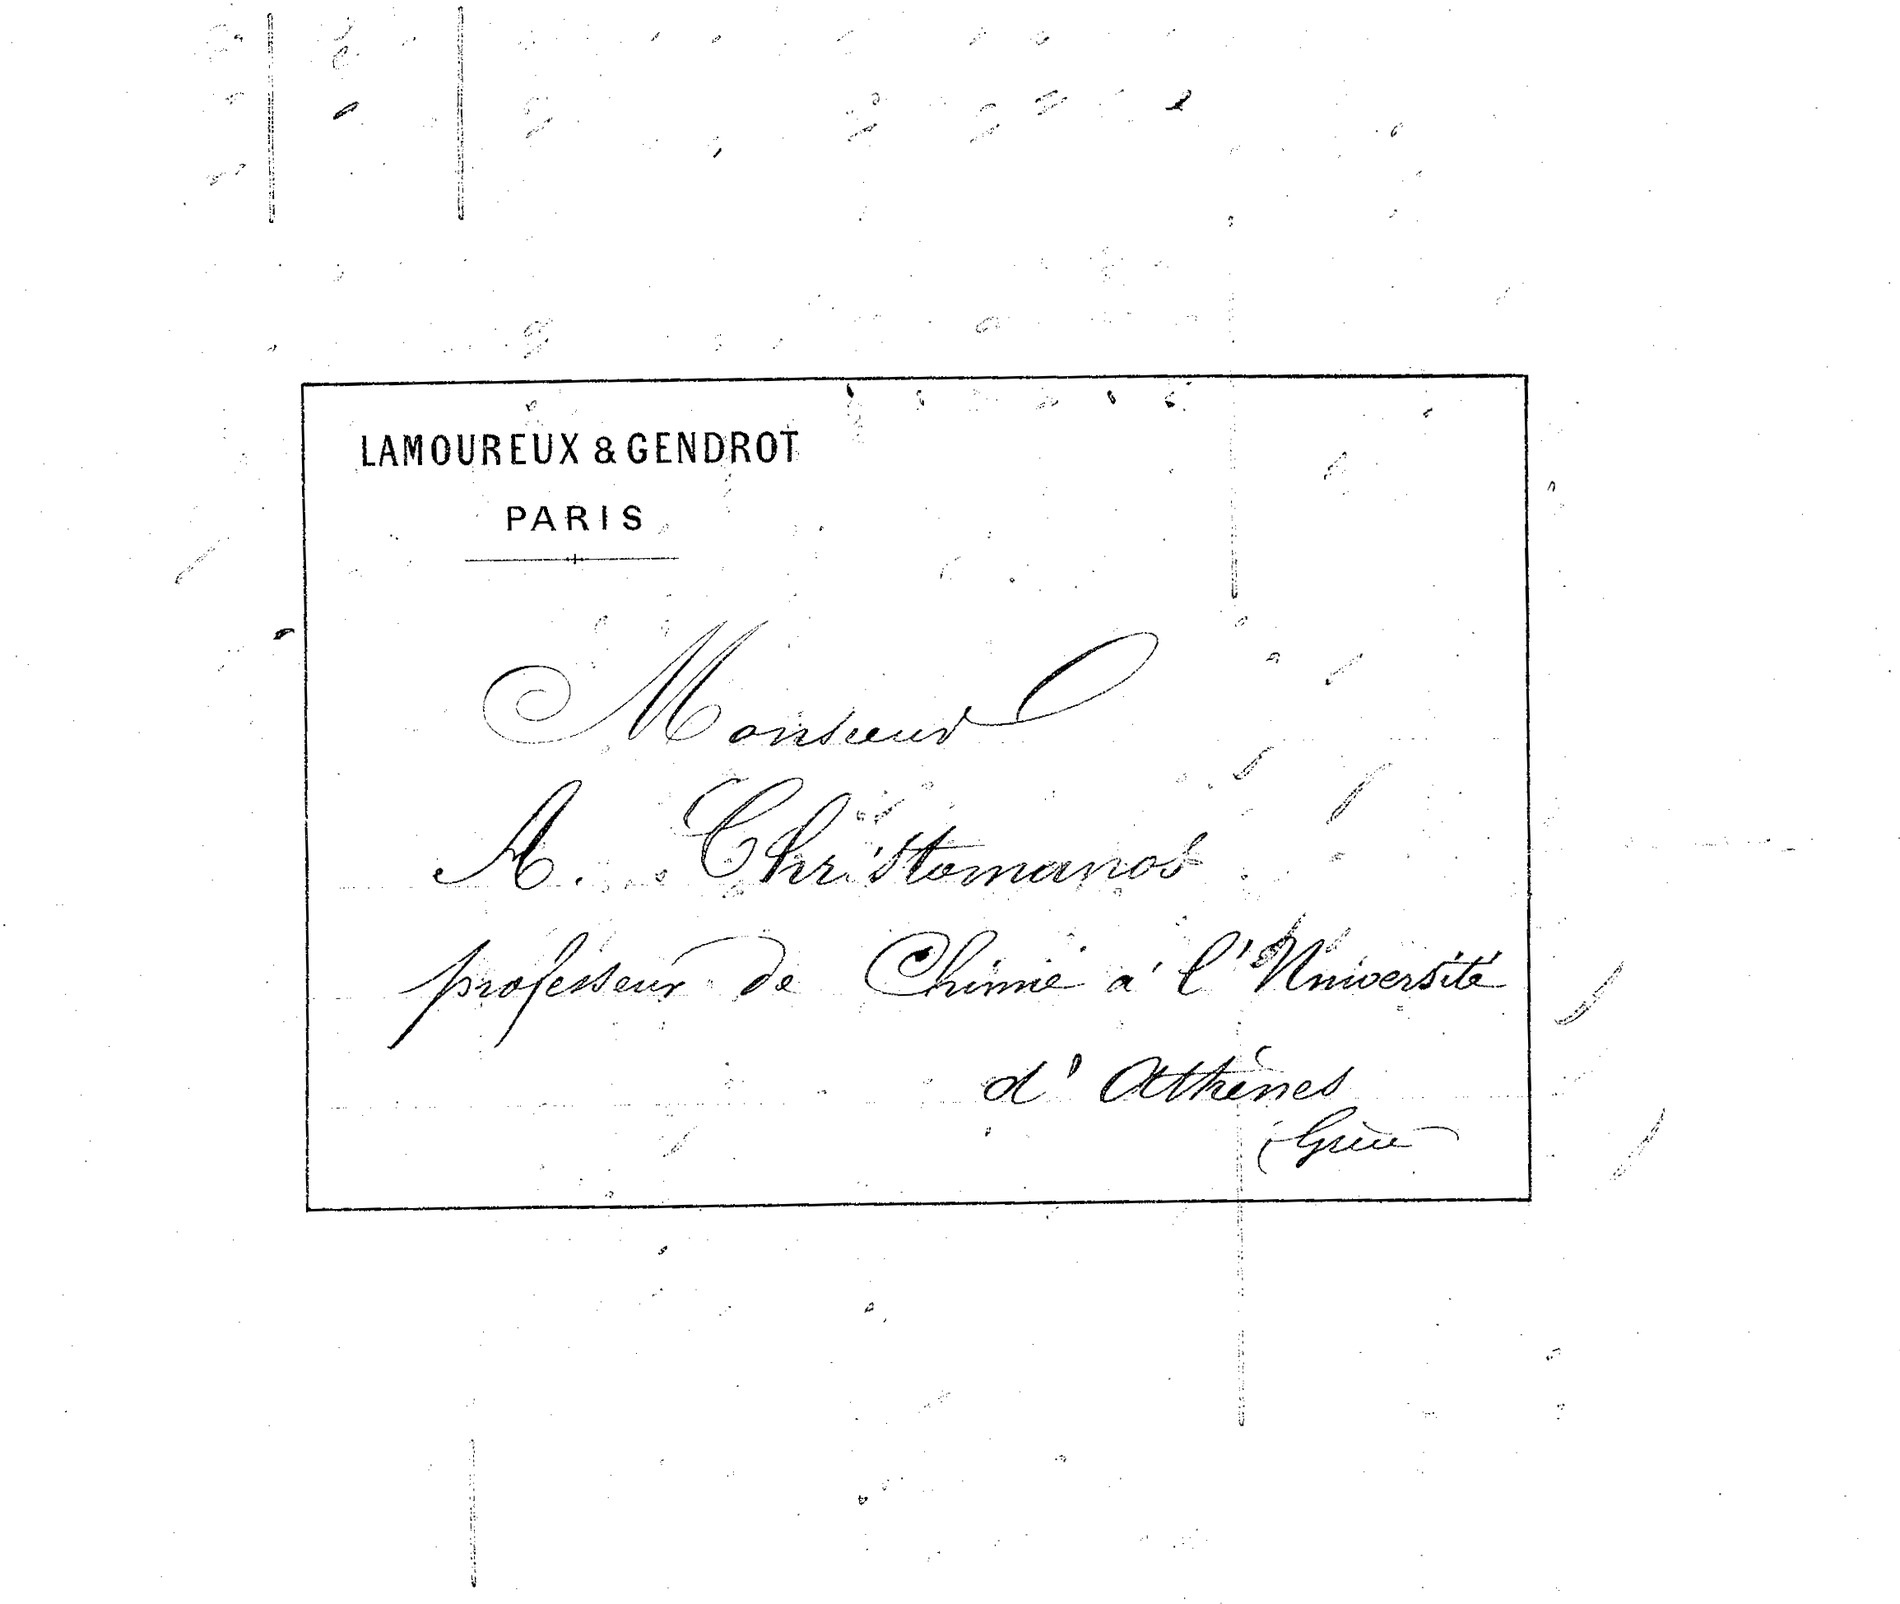 LAMOUREUX & GENDROT
PARIS
Monsieur
A. Christomanos
professeur de Chimie à l'Université
d'Athènes
Grèce